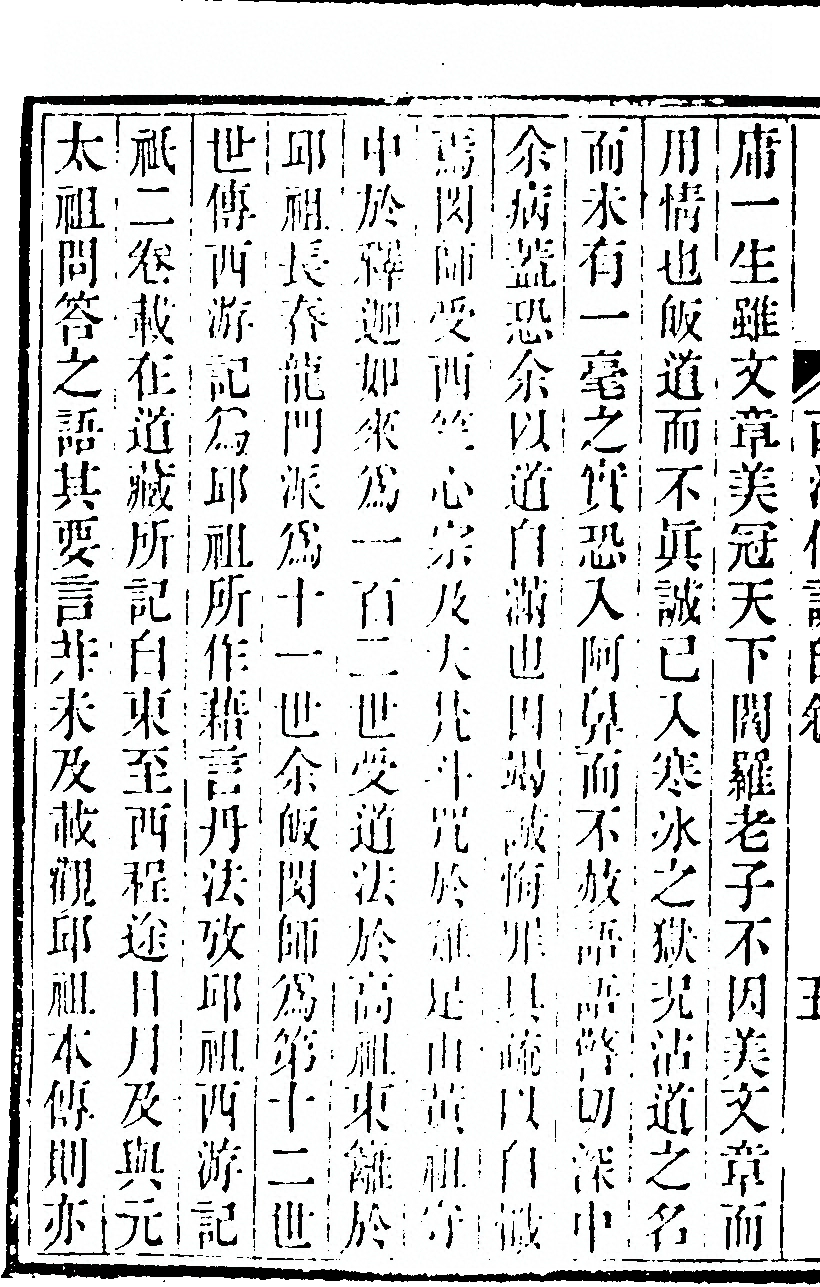 庸一生雖文章美冠天下閻羅老子不因美文章而
用情也皈道而不眞誠已入寒冰之獄況沾道之名
而未有一毫之實恐入阿鼻而不赦語語警切深中
余病蓋恐余以道自滿也因竭誠悔罪具疏以自懺
焉閔師受西竺心宗及大梵斗咒於雞足山黃祖守
中於釋迦如來爲一百二世受道法於高祖東籬於
邱祖長春龍門派爲十一世余皈閔師爲第十二世
世傳西游記爲邱祖所作藉言丹法攷邱祖西游記
祇二卷載在道藏所記自東至西程途日月及與元
太祖問答之語其要言并未及載觀邱祖本傳則亦